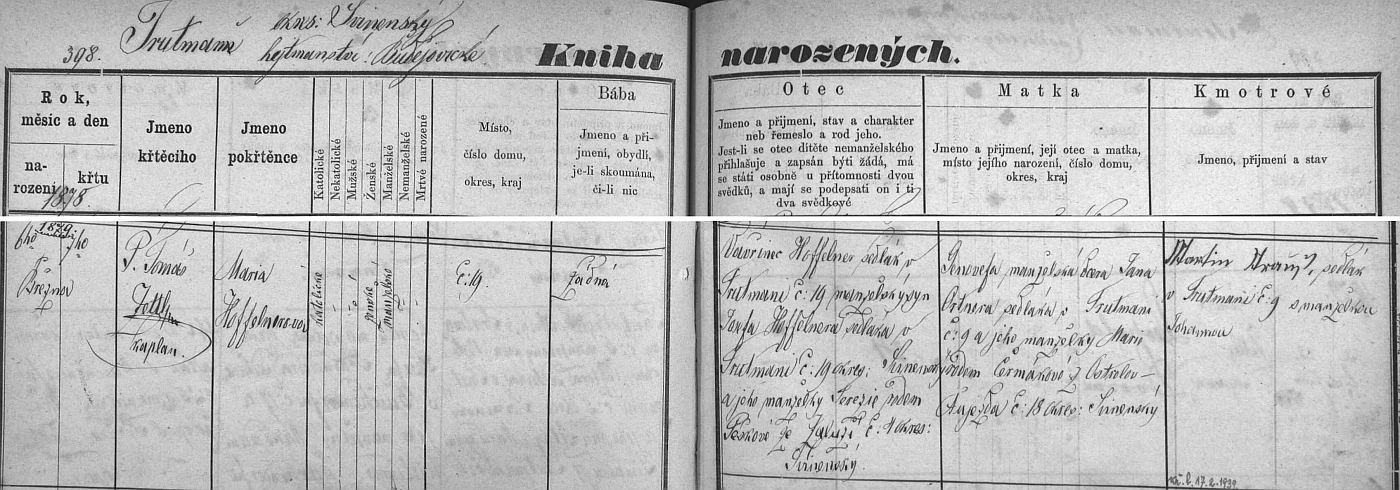 398. Trutmaň okres: Svinenský
hejtmanství: Budějovické
Kniha narozených.
Rok,
měsíc a den
na-
rození
křtu
1878
Jméno
křtícího
Jméno
pokřtěnce
Katolické
Nekatolické
Mužské
Ženské
Manželské
Nemanželské
Mrtvé narozené
Místo,
číslo domu,
okres, kraj
Bába
Jméno a při-
jmení, obydlí,
je-li skoumána,
či-li nic
Otec
Jméno a přijmení, stav a charakter
neb řemeslo a rod jeho.
Jest-li se otec dítěte nemanželského
přihlašuje a zapsán býti žádá, má
se státi osobně u přítomnosti dvou
svědků, a mají se podepsati on i ti
dva svědkové
Matka
Jméno a přijmení, její otec a matka,
místo jejího narození, číslo domu,
okres, kraj
Kmotrové
Jméno, přijmení a stav
1879
6ho 7ho
Března
P. Tomáš
kaplan.
Maria
Hoffelnerová
katolické
ženské
manželské
č: 19.
žádná
Vavřinec Hoffelner sedlák v
Trutmani č: 19 manželský syn
Josefa Hoffelnera sedláka v
Trutmani č: 19 okres: Svinenský
a jeho manželky Terezie rodem
Peškové ze Záluží č: 4 okres:
Svinenský.
Genovefa manželská dcera Jana
Ortnera sedláka v Trutmani
č: 9 a jeho manželky Marie
rodem Čermákové z Ostrolov-
Újezda č: 18 okres: Svinenský
Martin sedlák
v Trutmani č: 9 s manželkou
Johannou
17.2.1939.